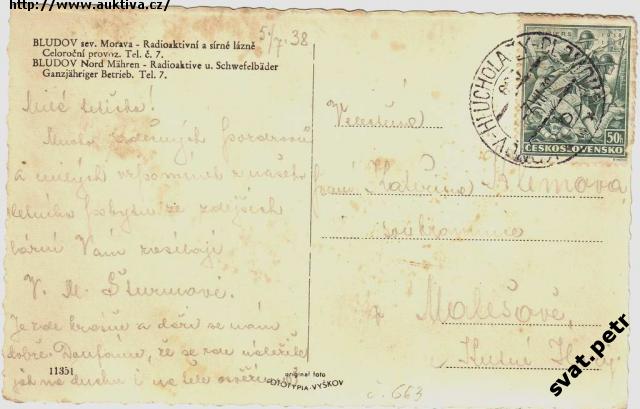 http://www.auktiva.cz/
5/7.38
BLUDOV sev. Morava - Radioaktivní a sírné lázně
Celoroční provoz. Tel. č. 7.
BLUDOV Nord Mähren - Radioaktive u. Schwefelbäder
Ganzjähriger Betrieb. Tel. 7.
Milá tetičko!
Mnoho srdečných pozdravů
a milých vzpomínek z našeho
letního pobytu ze zdejších
lázní Vám zasílají
V. M. Šturmovi.
Je zde krásně a daří se nám
dobře. Doufáme, že se zde náležitě
jak na duchu i na těle
11351
original foto
FOTOTYPIA-VYŠKOV
Velectěná
paní Kateřina Klímová
soukromnice
v Malešově
u Kutné Hory
č. 663
ČESKOSLOVENSKO
50h
svat.petr